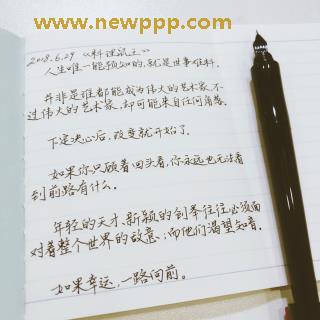 www.newppp.com
2018.6.29 《料理鼠王》
人生唯一能预知的,就是世事难料.
并非是谁都能成为伟大的艺术家.不
过伟大的艺术家,却可能来自任何角落.
下定决心后,改变就开始了.
如果你只顾着回头看,你永远也无法看
到前路有什么.
年轻的天才,新颖的创举往往必须面
对着整个世界的敌意;而他们渴望知音.
如果幸运,一路向前。